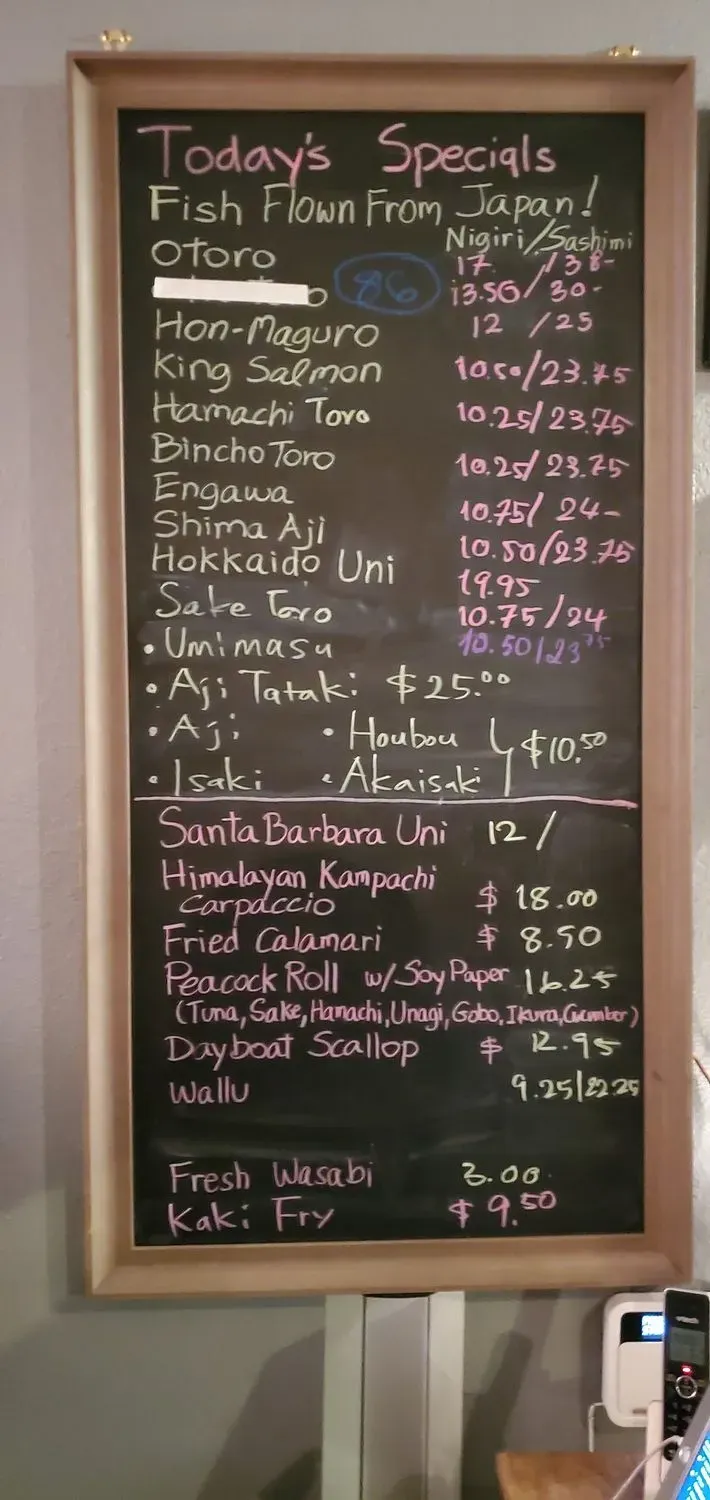 Today's Specials
Fish Flown From Japan!
Nigiri/Sashimi
Otoro 17 /38-
86 13.50/30-
Hon-Maguro 12 /25
King Salmon 10.50/23.75
Hamachi Toro 10.25/23.75
Bincho Toro 10.25/23.75
Engawa 10.75/24-
Shima Aji 10.50/23.75
Hokkaido Uni 19.95
Sake Toro 10.75/24
• Umimasu 10.50/23 75
• Aji Tataki $25.00
• Aji • Houbou
$10.50
• Isaki • Akaisaki
Santa Barbara Uni 12/
Himalayan Kampachi
Carpaccio $ 18.00
Fried Calamari $ 8.50
Peacock Roll w/Soy Paper 16.25
(Tuna, Sake, Hamachi, Unagi, Gobo, Ikura, Cucumber)
Dayboat Scallop $ 12.95
Wallu 9.25/22.25
Fresh Wasabi 3.00
Kaki Fry $ 9.50
vtech